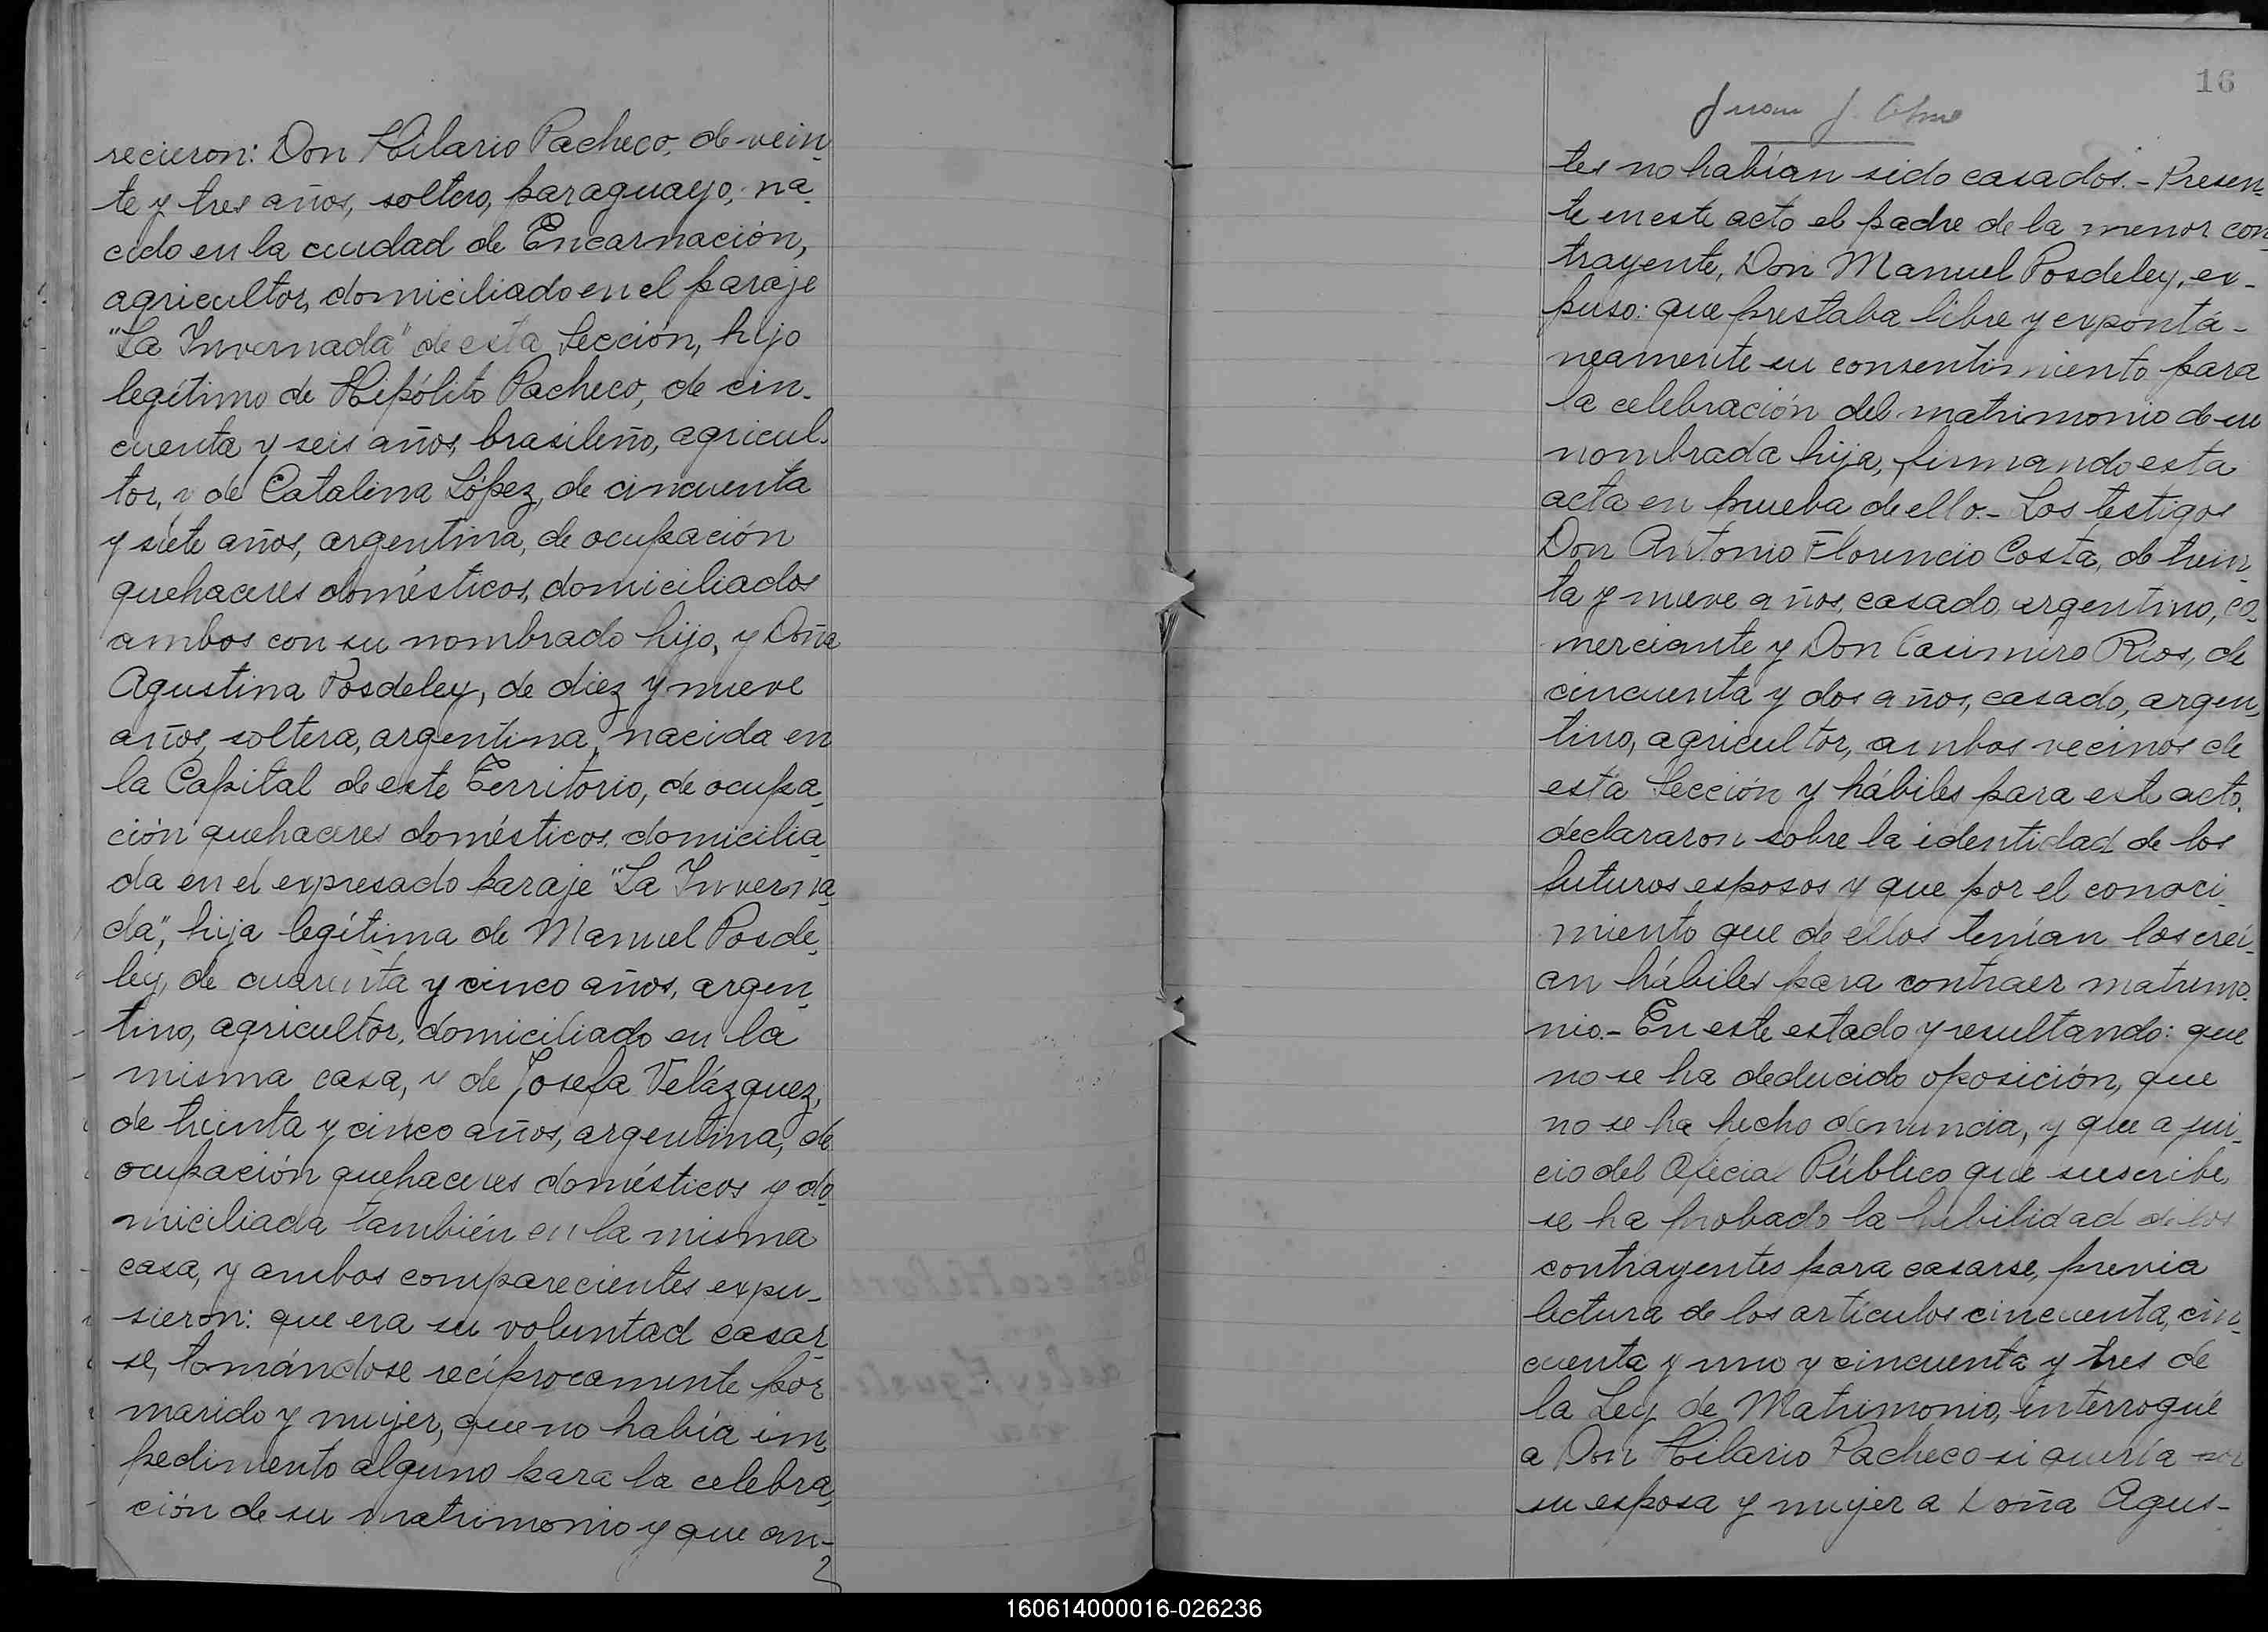 recieron: Don Hilario Pacheco, de vein-
te y tres años, soltero, paraguayo, na-
cido en la ciudad de Encarnación,
agricultor, domiciliado en el paraje
"La Invernada" de esta Sección, hijo
legítimo de Hipólito Pacheco, de cin-
cuenta y seis años, brasileño, agricul-
tor, y de Catalina López, de cincuenta
y siete años, argentina, de ocupación
quehaceres domésticos, domiciliados
ambos con su nombrado hijo, y Doña
Agustina Posdeley, de diez y nueve
años, soltera, argentina, nacida en
la Capital de este Territorio, de ocupa-
ción quehaceres domésticos, domicilia-
da en el expresado paraje "La Inverna-
da", hija legítima de Manuel Posde-
ley, de cuarenta y cinco años, argen-
tino, agricultor, domiciliado en la
misma casa, y de Josefa Velázquez,
de treinta y cinco años, argentina, de
ocupación quehaceres domésticos y do-
miciliada también en la misma
casa, y ambos comparecientes expu-
sieron: que era su voluntad casar-
se, tomándose recíprocamente por
marido y mujer, que no había im-
pedimento alguno para la celebra-
ción de su matrimonio y que an-
16
Juan J.
tes no habían sido casados.- Presen-
te en este acto el padre de la menor con-
trayente, Don Manuel Posdeley, ex-
puso: que prestaba libre y expontá-
neamente su consentimiento para
la celebración del matrimonio de su
nombrada hija, firmando esta
acta en prueba de ello.- Los testigos
Don Antonio Florencio Costa, de trein-
ta y nueve años, casado, argentino, co-
merciante y Don Casimiro Ríos, de
cincuenta y dos años, casado, argen-
tino, agricultor, ambos vecinos de
esta Sección y hábiles para este acto,
declararon sobre la identidad de los
futuros esposos y que por el conoci-
miento que de ellos tenían los creí-
an hábiles para contraer matrimo-
nio.- En este estado y resultando: que
no se ha deducido oposición, que
no se ha hecho denuncia, y que a jui-
cio del Oficial Público que suscribe,
se ha probado la habilidad de los
contrayentes para casarse, previa
lectura de los artículos cincuenta, cin-
cuenta y uno y cincuenta y tres de
la Ley de Matrimonio, interrogué
a Don Hilario Pacheco si quería por
su esposa y mujer a Doña Agus-
160614000016-026236